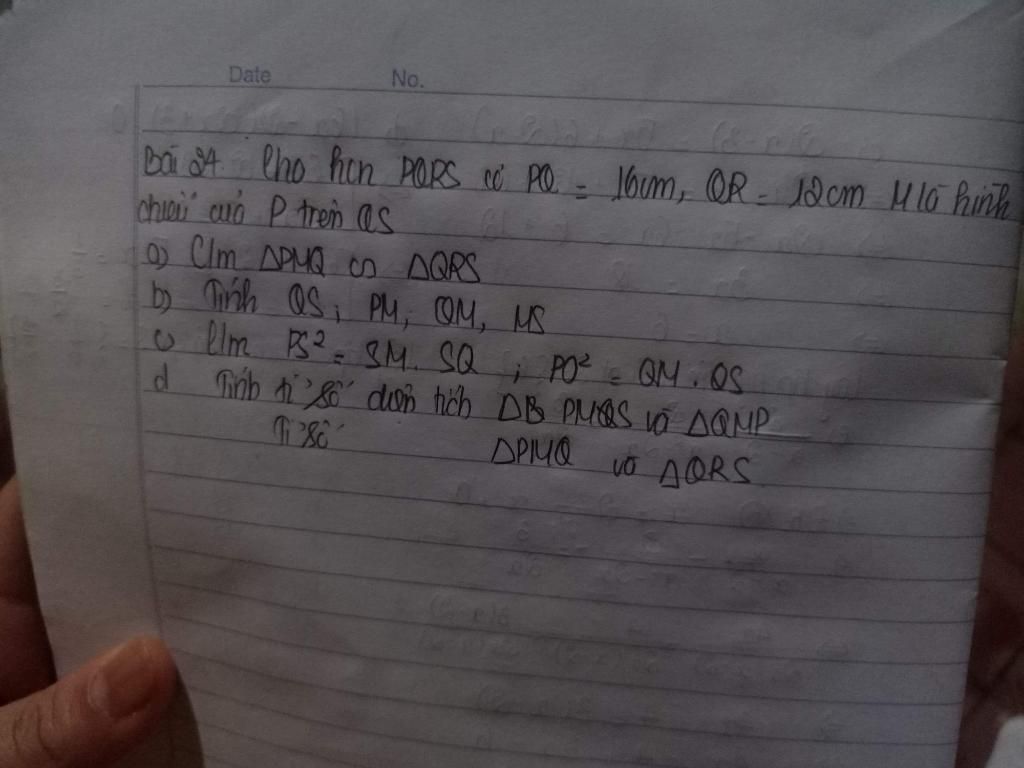 Date No.
Bài 24. Cho hcn PQRS có PQ = 16cm, QR = 12cm M là hình
chiếu của P trên QS
a) C/m △PMQ ∽ △QRS
b) Tính QS; PM, QM, MS
c) C/m PS² = SM. SQ ; PQ² = QM. QS
d Tính tỉ số diện tích △ PMQS và △QMP
Tỉ số △PMQ và △QRS